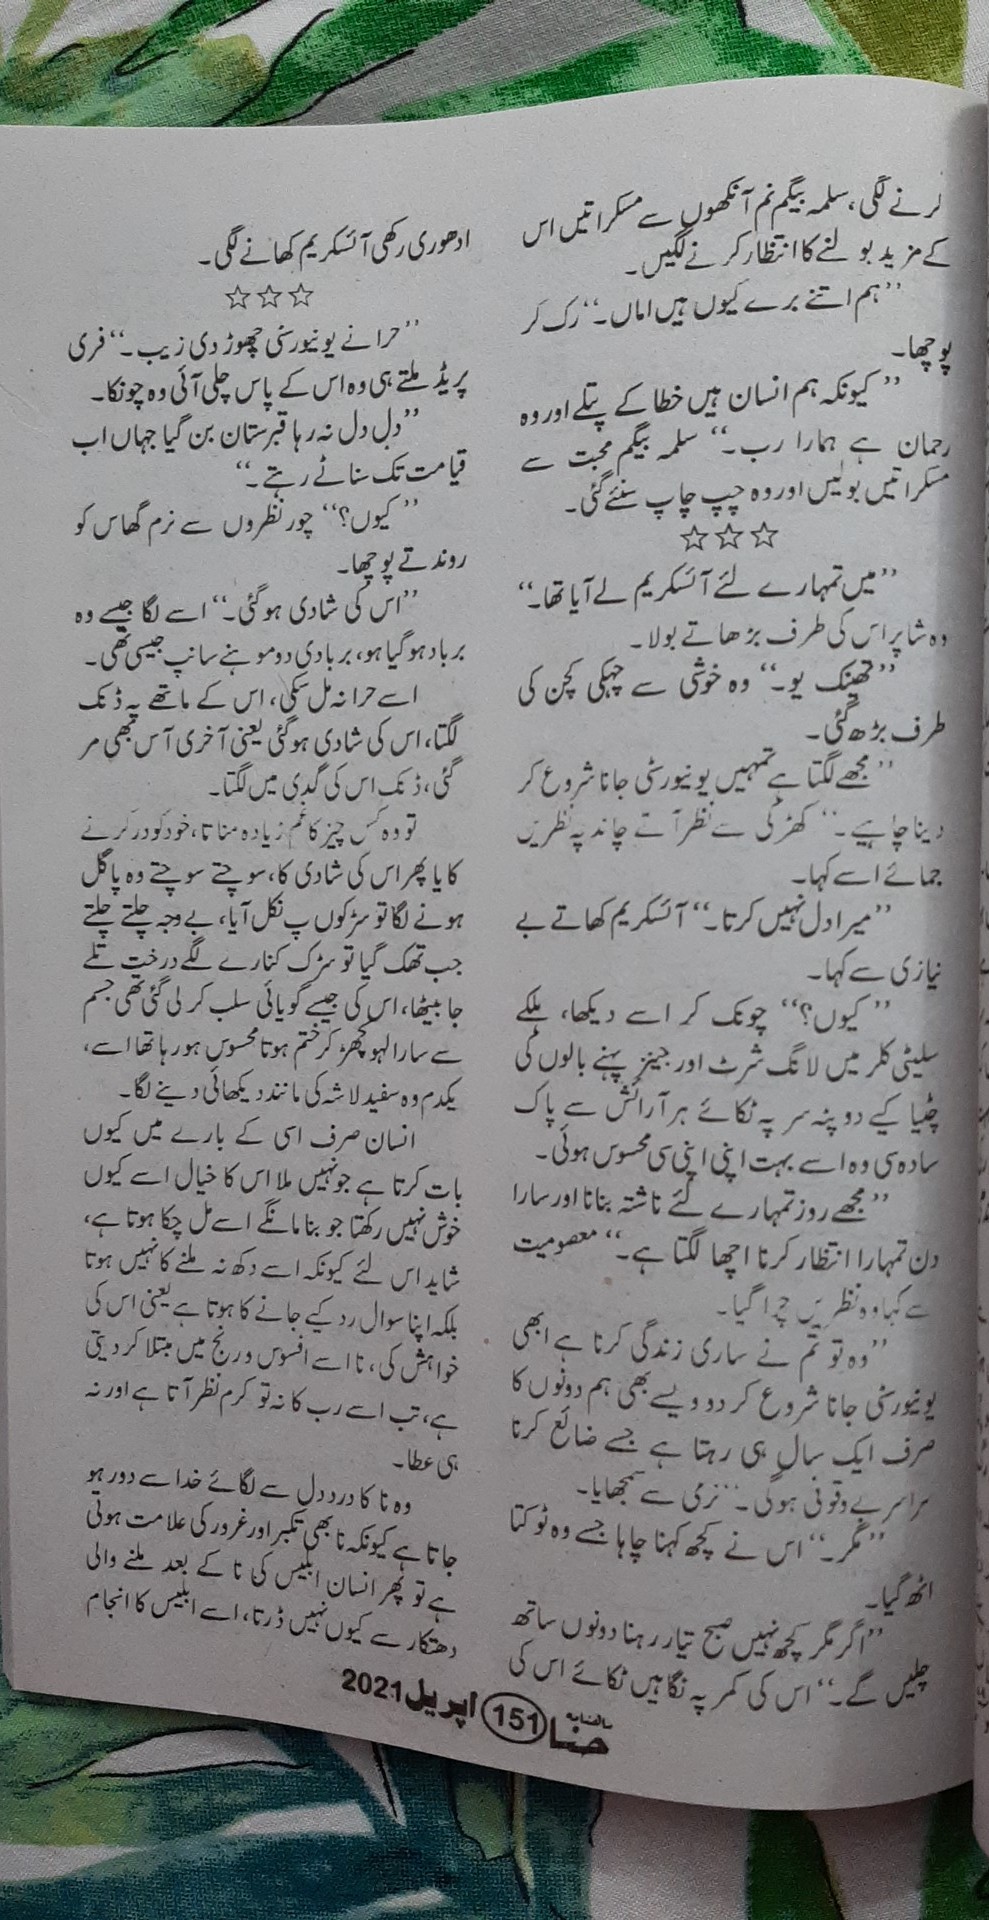 کرنے لگی، سلمہ بیگم نم آنکھوں سے مسکراتیں اس
کے مزید بولنے کا انتظار کرنے لگیں۔
’’ہم اتنے برے کیوں ہیں اماں۔‘‘ رک کر
پوچھا۔
’’کیونکہ ہم انسان ہیں خطا کے پتلے اور وہ
رحمان ہے ہمارا رب۔‘‘ سلمہ بیگم محبت سے
مسکراتیں بولیں اور وہ چپ چاپ سنئے گئی۔
☆☆☆
’’میں تمہارے لئے آئسکریم لے آیا تھا۔‘‘
وہ شاپر اس کی طرف بڑھاتے بولا۔
’’تھینک یو۔‘‘ وہ خوشی سے چہکی کچن کی
طرف بڑھ گئی۔
’’مجھے لگتا ہے تمہیں یونیورسٹی جانا شروع کر
دینا چاہیے۔‘‘ کھڑکی سے نظر آتے چاند پہ نظریں
جمائے اسے کہا۔
’’میرا دل نہیں کرتا۔‘‘ آئسکریم کھاتے بے
نیازی سے کہا۔
’’کیوں؟‘‘ چونک کر اسے دیکھا، ہلکے
سلیٹی کلر میں لانگ شرٹ اور جینز پہنے بالوں کی
چٹیا کیے دوپٹہ سر پہ ٹکائے ہر آرائش سے پاک
سادہ سی وہ اسے بہت اپنی اپنی سی محسوس ہوئی۔
’’مجھے روز تمہارے لئے ناشتہ بنانا اور سارا
دن تمہارا انتظار کرنا اچھا لگتا ہے۔‘‘ معصومیت
سے کہا وہ نظریں چرا گیا۔
’’وہ تو تم نے ساری زندگی کرنا ہے ابھی
یونیورسٹی جانا شروع کر دو ویسے بھی ہم دونوں کا
صرف ایک سال ہی رہتا ہے جسے ضائع کرنا
سراسر بے وقوفی ہو گی۔‘‘ نرمی سے سمجھایا۔
’’مگر۔‘‘ اس نے کچھ کہنا چاہا جسے وہ ٹوکتا
اٹھ گیا۔
’’اگر مگر کچھ نہیں صبح تیار رہنا دونوں ساتھ
چلیں گے۔‘‘ اس کی کمر پہ نگاہیں ٹکائے اس کی
ادھوری رکھی آئسکریم کھانے لگی۔
☆☆☆
’’حرا نے یونیورسٹی چھوڑ دی زیب۔‘‘ فری
پریڈ ملتے ہی وہ اس کے پاس چلی آئی وہ چونکا۔
’’دل دل نہ رہا قبرستان بن گیا جہاں اب
قیامت تک سناٹے رہتے۔‘‘
’’کیوں؟‘‘ چور نظروں سے نرم گھاس کو
روندتے پوچھا۔
’’اس کی شادی ہو گئی۔‘‘ اسے لگا جیسے وہ
برباد ہو گیا ہو، بربادی دو موہنے سانپ جیسی تھی۔
اسے حرا نہ مل سکی، اس کے ماتھے پہ ڈنک
لگتا، اس کی شادی ہو گئی یعنی آخری آس بھی مر
گئی، ڈنک اس کی گدی میں لگتا۔
تو وہ کس چیز کا غم زیادہ مناتا، خود کو رد کرنے
کا یا پھر اس کی شادی کا، سوچتے سوچتے وہ پاگل
ہونے لگا تو سڑکوں پہ نکل آیا، بے وجہ چلتے چلتے
جب تھک گیا تو سڑک کنارے لگے درخت تلے
جا بیٹھا، اس کی جیسے گویائی سلب کر لی گئی تھی جسم
سے سارا لہو نچڑ کر ختم ہوتا محسوس ہو رہا تھا اسے،
یکدم وہ سفید لاشہ کی مانند دیکھائی دینے لگا۔
انسان صرف اسی کے بارے میں کیوں
بات کرتا ہے جو نہیں ملا اس کا خیال اسے کیوں
خوش نہیں رکھتا جو بنا مانگے اسے مل چکا ہوتا ہے،
شاید اس لئے کیونکہ اسے دکھ نہ ملنے کا نہیں ہوتا
بلکہ اپنا سوال رد کیے جانے کا ہوتا ہے یعنی اس کی
خواہش کی، نا اسے افسوس و رنج میں مبتلا کر دیتی
ہے، تب اسے رب کا نہ تو کرم نظر آتا ہے اور نہ
ہی عطا۔
وہ نا کا درد دل سے لگائے خدا سے دور ہو
جاتا ہے کیونکہ نا بھی تکبر اور غرور کی علامت ہوتی
ہے تو پھر انسان ابلیس کی نا کے بعد ملنے والی
دھتکار سے کیوں نہیں ڈرتا، اسے ابلیس کا انجام
ماہنامہ حنا 151 اپریل 2021